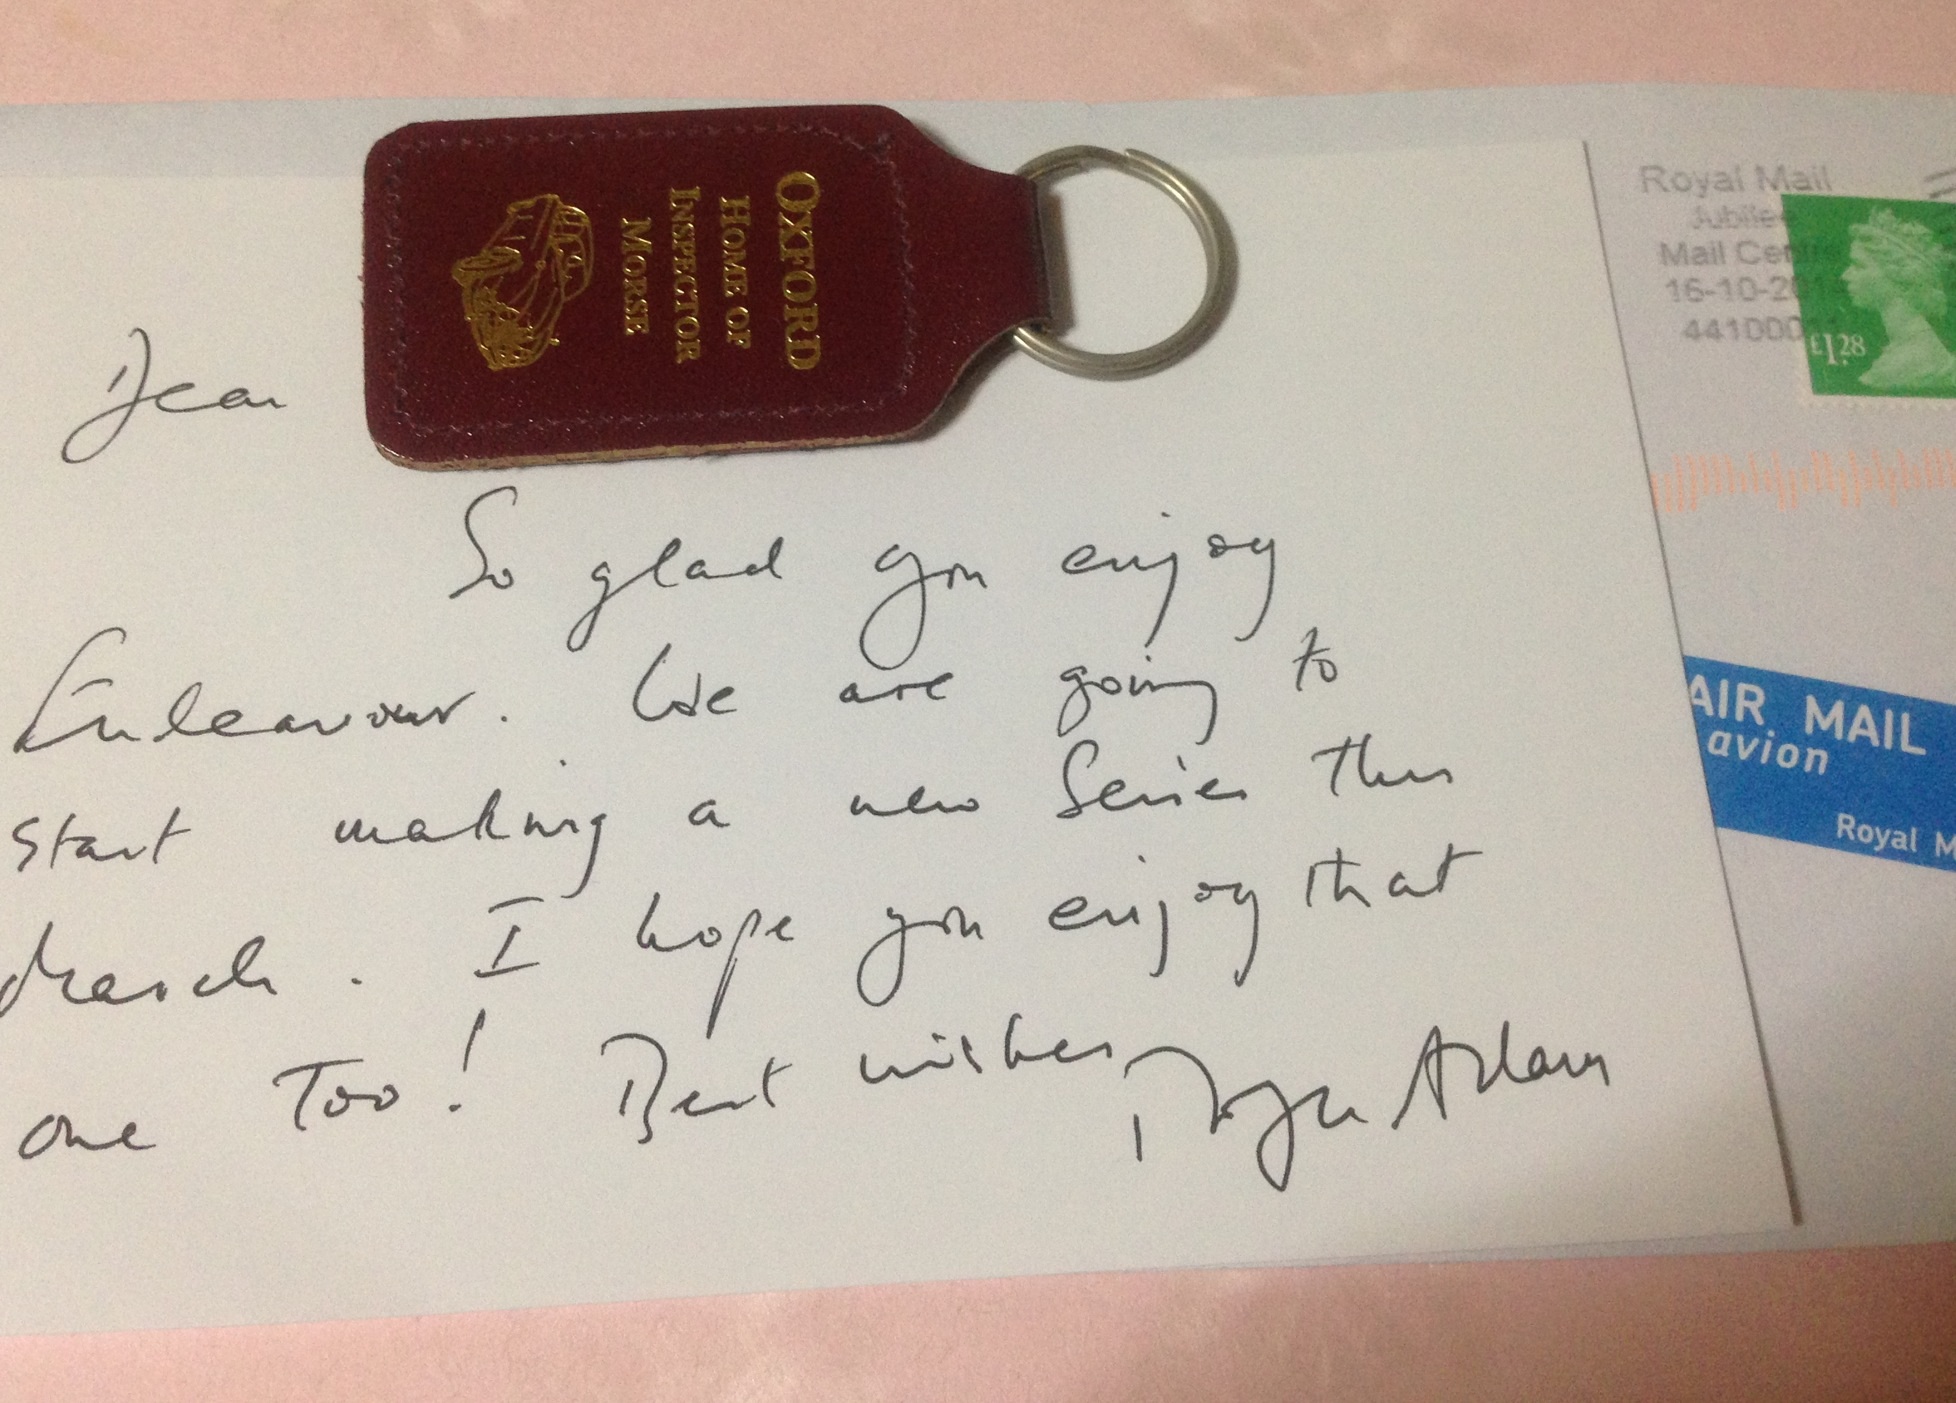 OXFORD
HOME OF
INSPECTOR
MORSE
Royal Mail
Jubilee
Mail Centre
16-10-20
441000
£1.28
AIR MAIL
avion
Royal M
Dear
So glad you enjoy
Endeavour. We are going to
start making a new Series this
March. I hope you enjoy that
one Too! Best wishes, Roger Allam